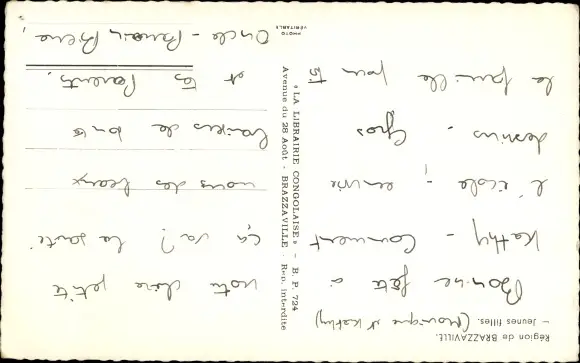 Région de BRAZZAVILLE.
— Jeunes filles. (Monique et Kathy)
Bonne fête à notre chère petite
Kathy - Comment ça va? la santé
l'école -, envoie nous des beaux
dessins - Gros baisers de toute
la famille pour toi et tes Parents.
Oncle - Parrain Pierre,
« LA LIBRAIRIE CONGOLAISE » - B. P. 724
Avenue du 28 Août - BRAZZAVILLE - Rep. interdite
PHOTO
VÉRITABLE